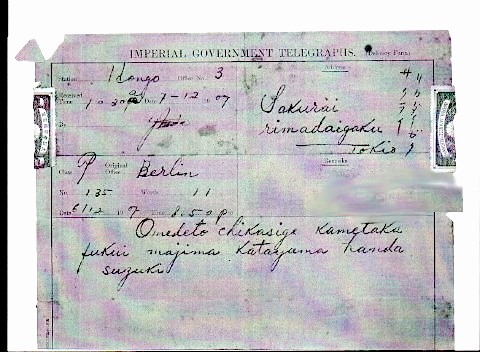 IMPERIAL GOVERNMENT TELEGRAPHS. (Delivery Form)
Station Hongo Office No. 3
Address
Received Time 10 30 Date 7-12 07
Sakurai
rimadaigaku
Tokio
By
Class P Original Office Berlin
Remarks
No. 135 Words 11
Date 6/12 07 Time 8.50 p
Omedeto chikasige kametaka
fukui majima Katayama handa
suzuki